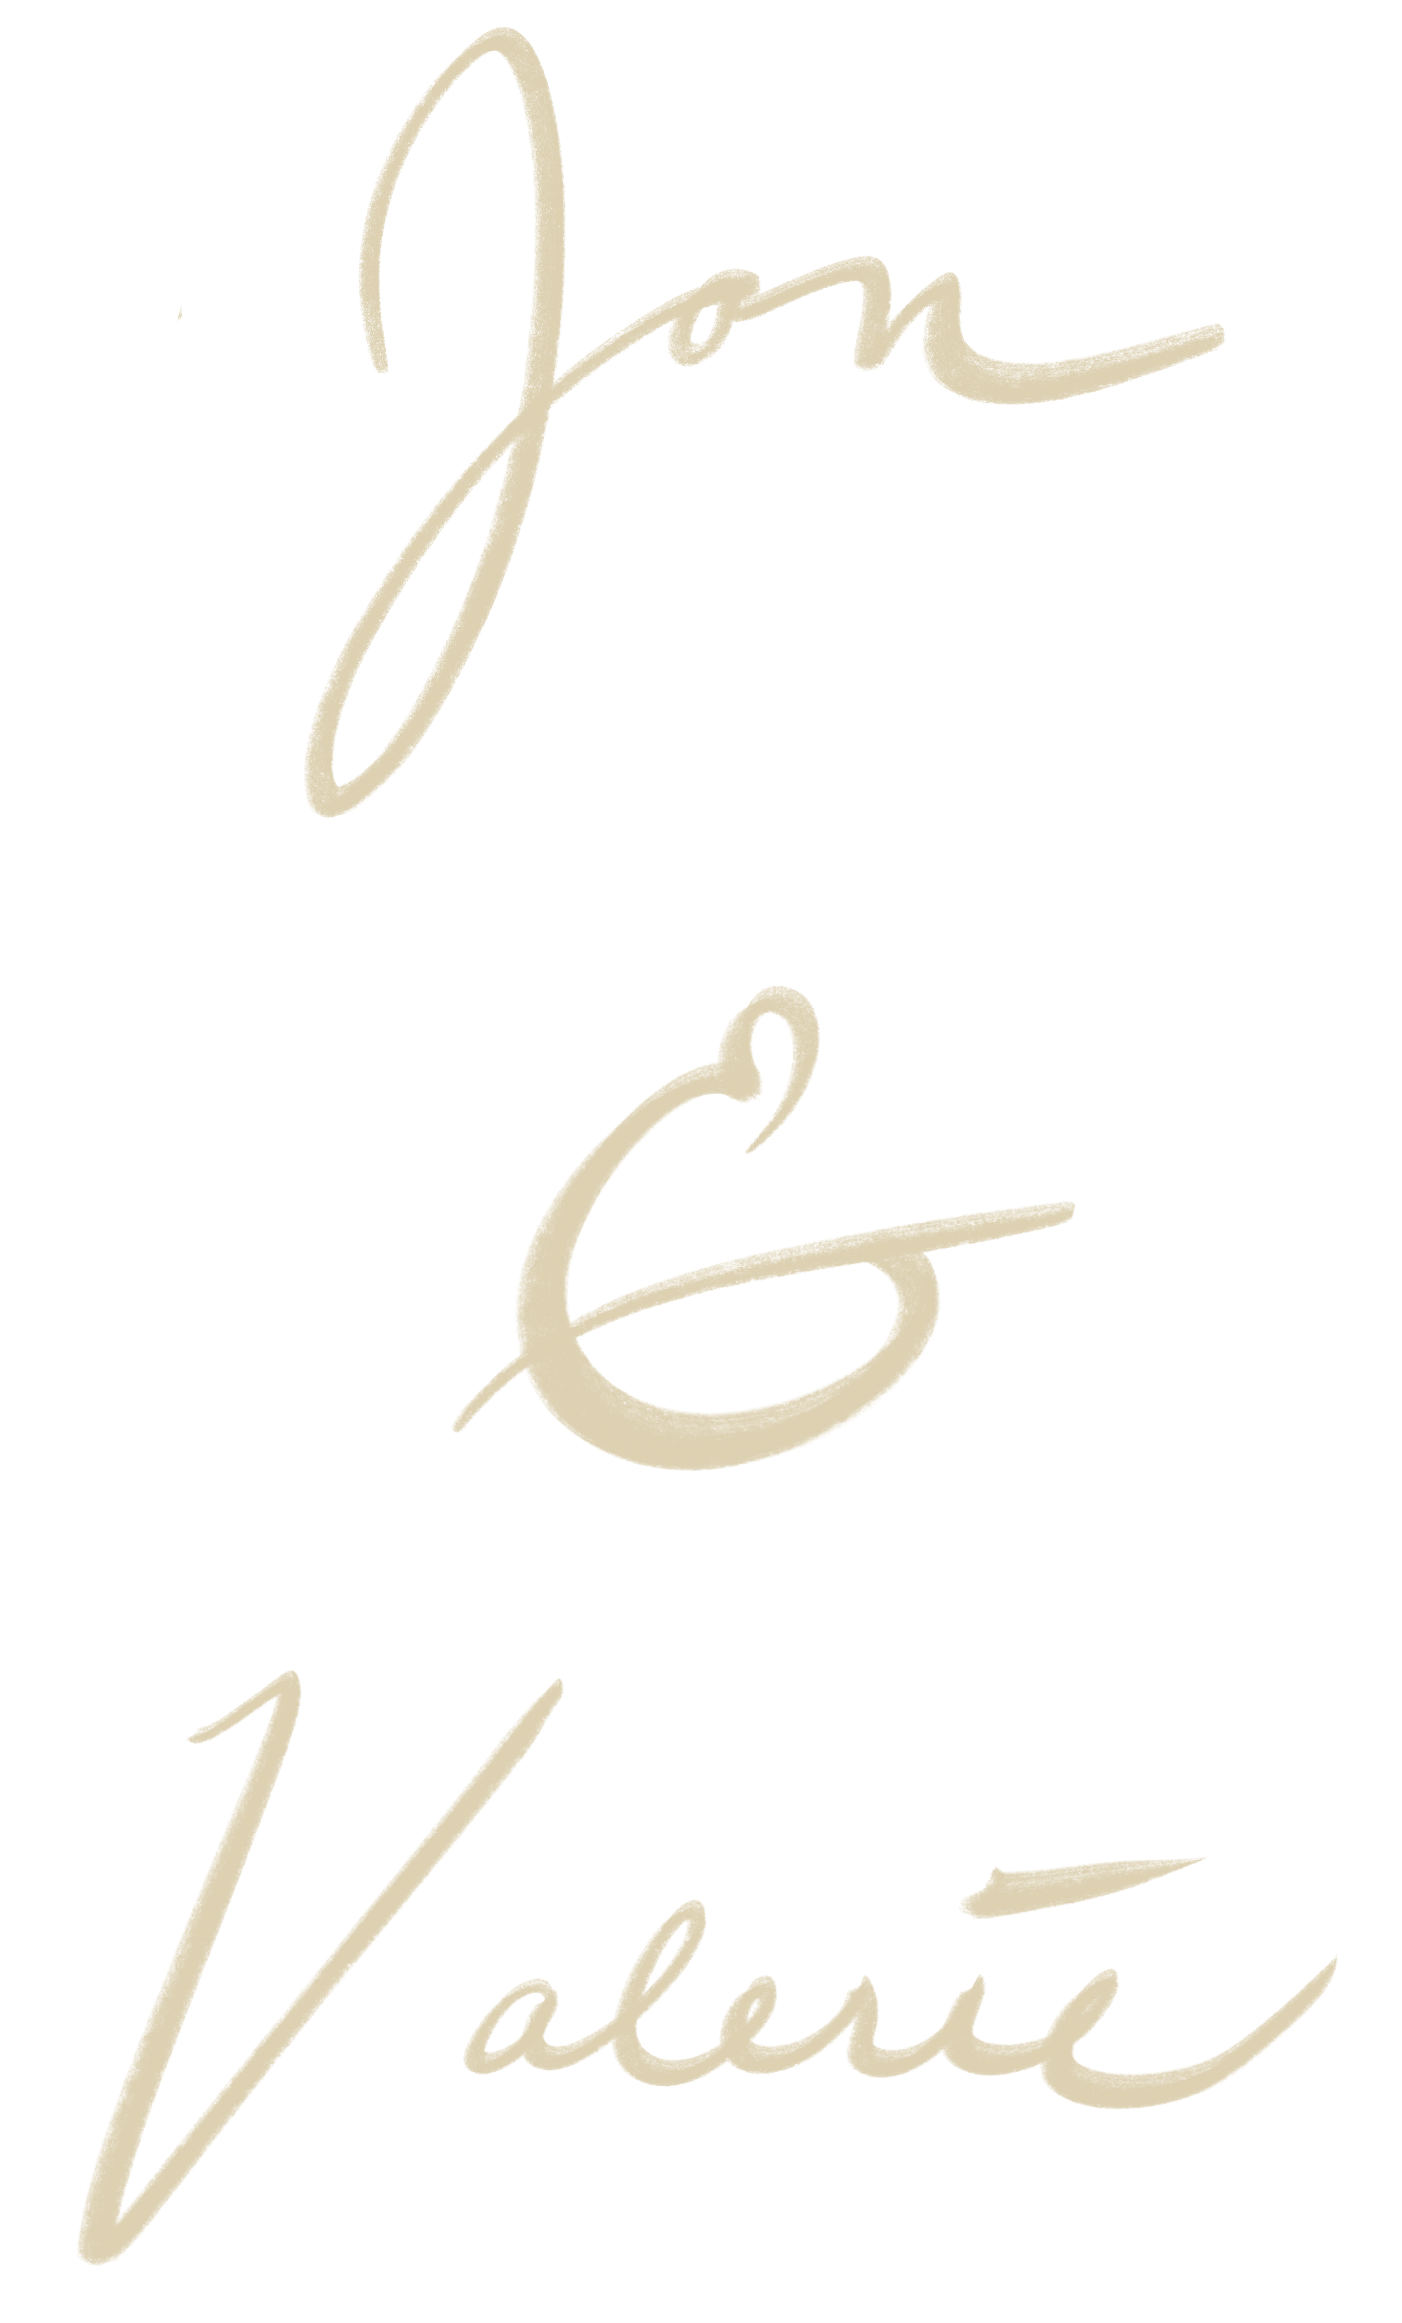 Jon
&
Valerie